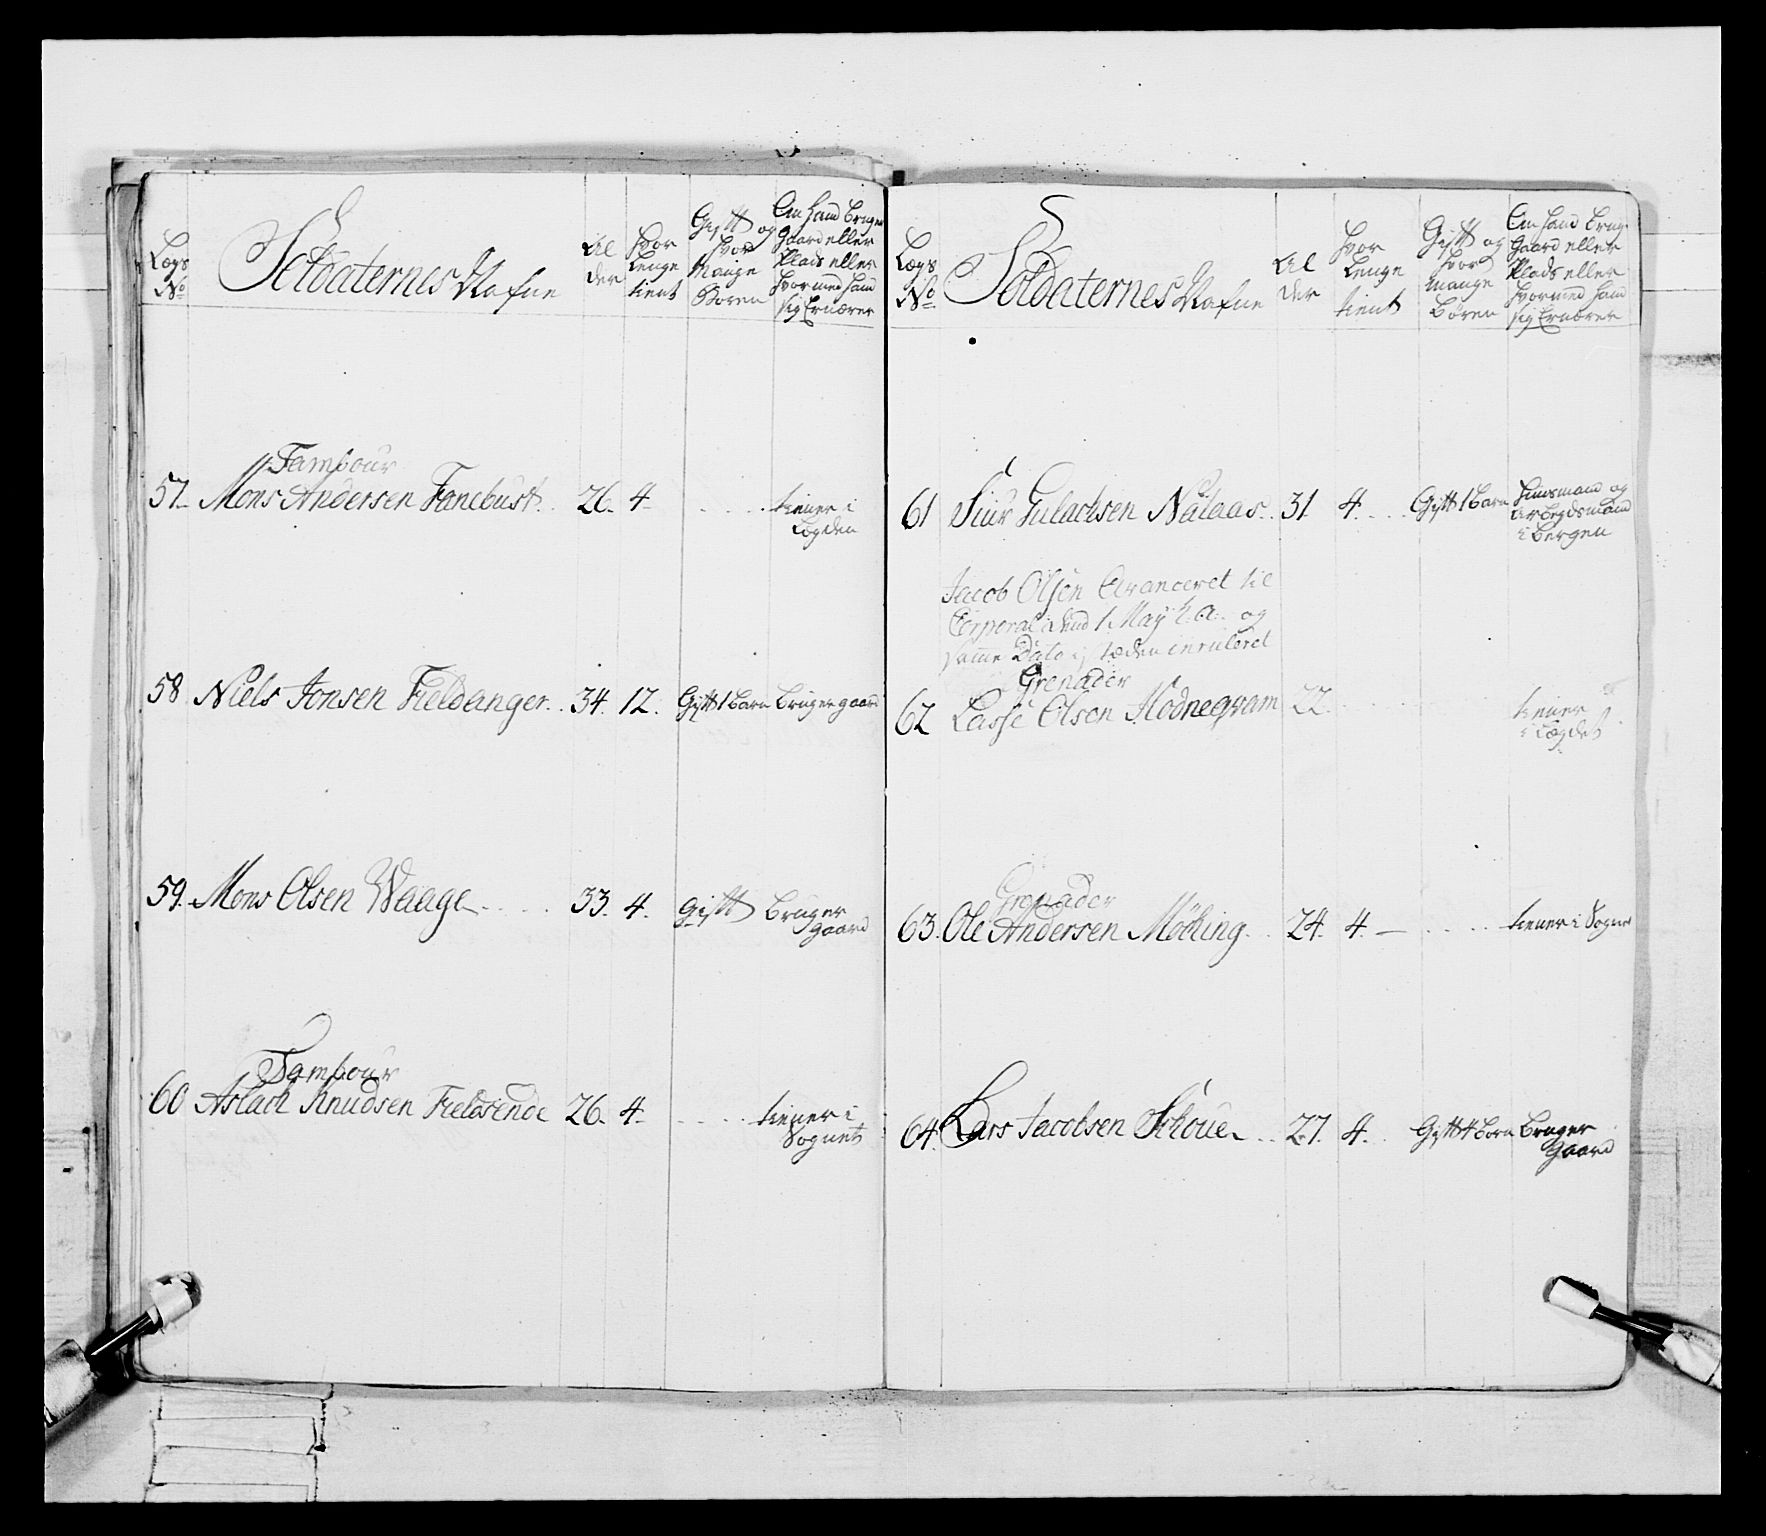 Lægs No
Soldaternes Nafne
Al der
hvor lenge tient
Gift og hvor Mange Børen
Om hand bruger gaard eller Plads eller hvormed hand sig Ernærer
Tambour
57. Mons Andersen Fanebust. 26. 4. tiener i
Lægden
58 Niels Jonsen Fieldanger. 34. 12. Gift 1 barn bruger gaard
59. Mons Olsen Waage 33. 4. Gift bruger
gaard
Tambour
60 Aslach Knudsen Fieldsende 26. 4. tiener i
Sognet
Lægs No
Soldaternes Nafne
Al der
hvor lenge tient
Gift og hvor mange børen
Om hand brug. gaard eller Plads eller hvormed hand sig Ernærer
61 Siur Gulachsen Nålaas. 31. 4. Gift 1 barn huusmand og
arbeydsmand
i bergen
Jacob Olsen Avanceret til
Corporal dend 1 May h. a. og
samme Dato i steden enruleret
Grenader
62 Lasse Olsen Modneqvam 22. tiener
i Lægdet
Grenader
63. Ole Andersen Møching. 24. 4. tiener i Sogne
64. Lars Jacobsen Schoue 27. 4. Gift 4 børn bruger
gaard